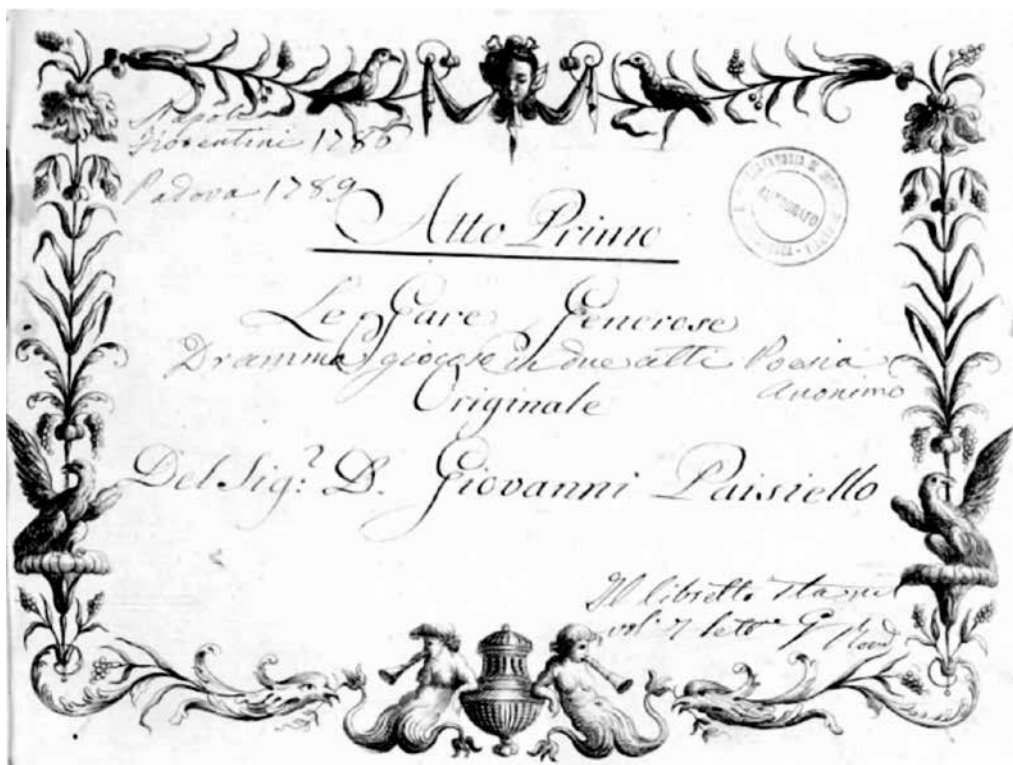 Napoli
Fiorentini 1786
Padova 1789
Atto Primo
Le Gare Generose
Dramma giocoso in due atti Poesia
anonimo
Originale
Del Sig.r D. Giovanni Paisiello
AUTOGRAFO
Il libretto sta nel
vol. 7 lett